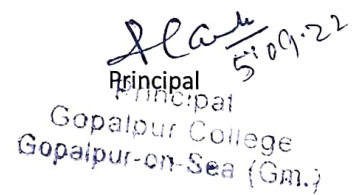 5.09.22
Principal
Principal
Gopalpur College
Gopalpur-on-Sea (Gm.)